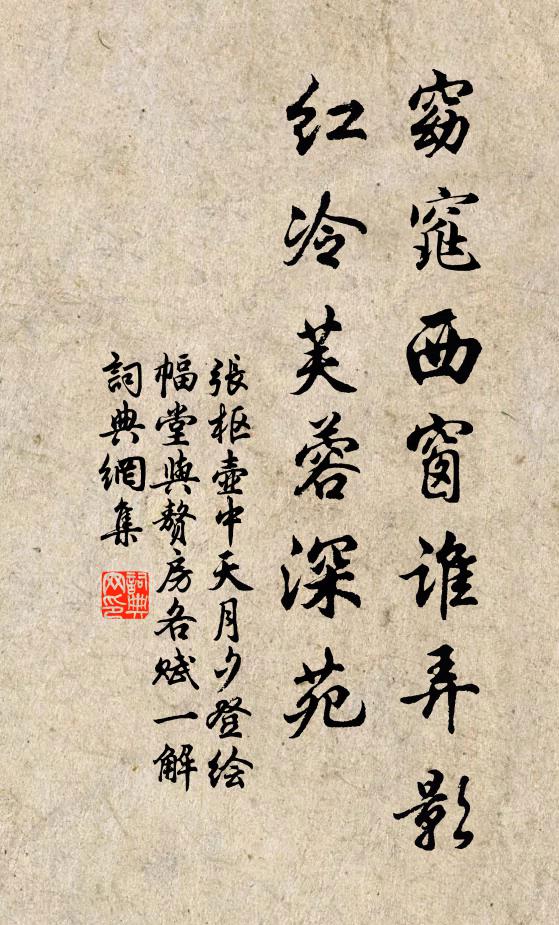 窈窕西窗谁弄影
红冷芙蓉深苑
張枢壺中天月夕登绘
幅堂與贅房各赋一解
詞典網集
詞典
网印